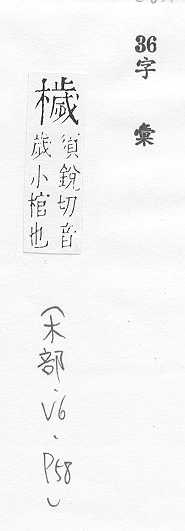 36字彙
檅
須銳切音
歲小棺也
(木部.V6.P58)